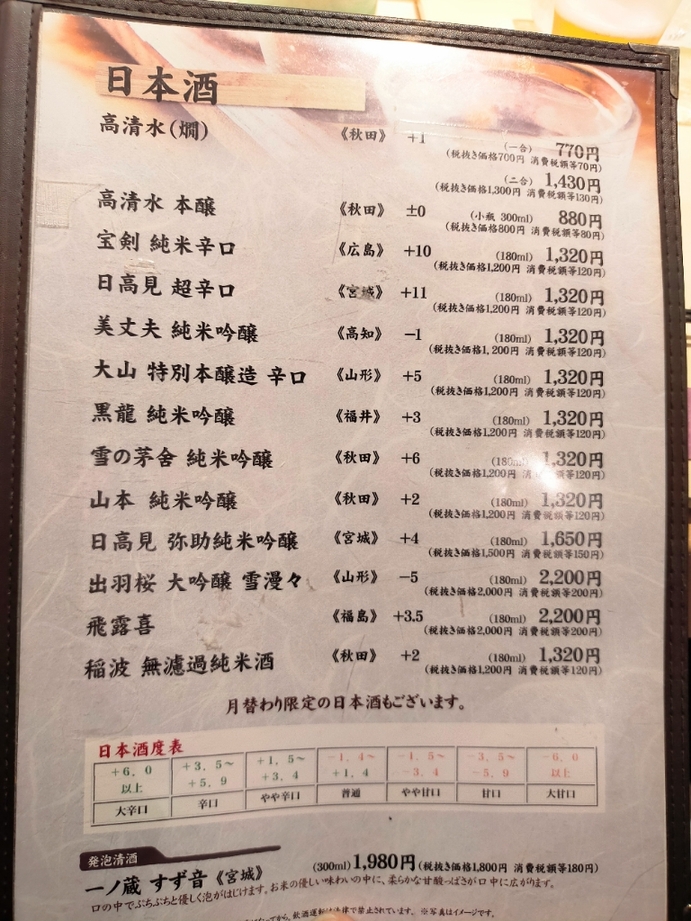 日本酒
高清水（燗） 《秋田》 +1 (一合) 770円
(税抜き価格700円 消費税額等70円)
(二合) 1,430円
(税抜き価格1,300円 消費税額等130円)
高清水 本醸 《秋田》 ±0 (小瓶 300ml) 880円
(税抜き価格800円 消費税額等80円)
宝剣 純米辛口 《広島》 +10 (180ml) 1,320円
(税抜き価格1,200円 消費税額等120円)
日高見 超辛口 《宮城》 +11 (180ml) 1,320円
(税抜き価格1,200円 消費税額等120円)
美丈夫 純米吟醸 《高知》 −1 (180ml) 1,320円
(税抜き価格1,200円 消費税額等120円)
大山 特別本醸造 辛口 《山形》 +5 (180ml) 1,320円
(税抜き価格1,200円 消費税額等120円)
黒龍 純米吟醸 《福井》 +3 (180ml) 1,320円
(税抜き価格1,200円 消費税額等120円)
雪の茅舎 純米吟醸 《秋田》 +6 (180ml) 1,320円
(税抜き価格1,200円 消費税額等120円)
山本 純米吟醸 《秋田》 +2 (180ml) 1,320円
(税抜き価格1,200円 消費税額等120円)
日高見 弥助純米吟醸 《宮城》 +4 (180ml) 1,650円
(税抜き価格1,500円 消費税額等150円)
出羽桜 大吟醸 雪漫々 《山形》 −5 (180ml) 2,200円
(税抜き価格2,000円 消費税額等200円)
飛露喜 《福島》 +3.5 (180ml) 2,200円
(税抜き価格2,000円 消費税額等200円)
稲波 無濾過純米酒 《秋田》 +2 (180ml) 1,320円
(税抜き価格1,200円 消費税額等120円)
月替わり限定の日本酒もございます。
日本酒度表
+6.0 +3.5〜 +1.5〜 −1.4〜 −1.5〜 −3.5〜 −6.0
以上 +5.9 +3.4 +1.4 −3.4 −5.9 以上
大辛口 辛口 やや辛口 普通 やや甘口 甘口 大甘口
発泡清酒
一ノ蔵 すず音 《宮城》 (300ml) 1,980円 (税抜き価格1,800円 消費税額等180円)
口の中でぷちぷちと優しく泡がはじけます。お米の優しい味わいの中に、柔らかな甘酸っぱさが口中に広がります。
てから、飲酒運転は法律で禁止されています。 ※写真はイメージです。